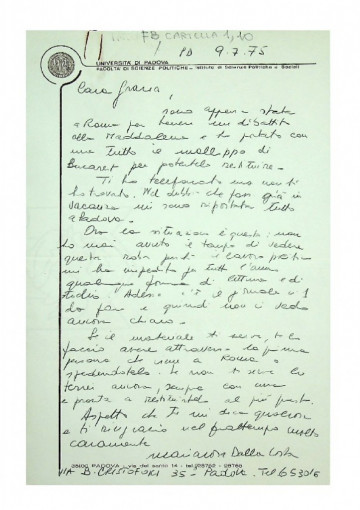 FB CARTELLA 1,10
PD 9.7.75
UNIVERSITÀ DI PADOVA
FACOLTÀ DI SCIENZE POLITICHE - Istituto di Scienze Politiche e Sociali
Cara Grazia,
sono appena stata
a Roma per tenere un dibattito
alla Maddalena e ho portato con
me tutto il malloppo di
per potertelo restituire.
Ti ho telefonato ma non ti
ho trovato. Nel dubbio che fossi già in
vacanza mi sono riportata tutto
a Padova.
Ora la situazione è questa: non
ho mai avuto il tempo di vedere
questa roba perché il lavoro politico
mi ha impedito per tutto l'anno
qualunque forma di lettura e di
studio. Adesso c'è il giornale
da fare e quindi non ci vedo
ancora chiaro.
Se il materiale ti serve, te lo
faccio avere attraverso la prima
persona che viene a Roma o
spedendotelo. Se non ti serve lo
terrei ancora, sempre con
pronta a restituirtelo al più presto.
Aspetto che tu mi dica qualcosa
e ti ringrazio nel frattempo molto
caramente
Mariarosa Dalla Costa
35100 PADOVA - via del santo 14 - tel.
VIA B. CRISTOFORI 35 - Padova. Tel 653016